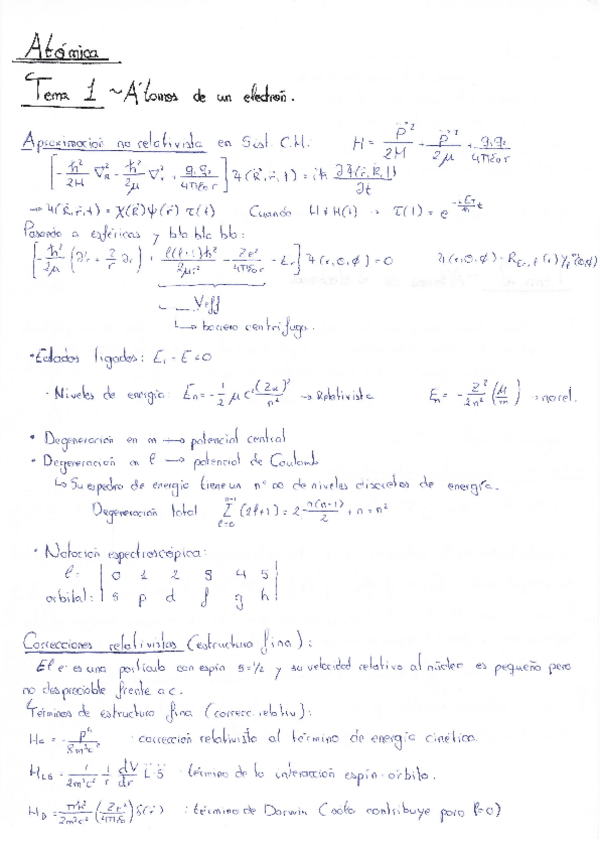 Atómica
Tema 1 ~ Átomos de un electrón.
Aproximación no relativista en Sist. C.M. H = P²/2M + p²/2μ + q₁q₂/4πε₀r
[-ħ²/2M ∇²_R - ħ²/2μ ∇²_r + q₁q₂/4πε₀r] Ψ(R,r,t) = iħ ∂Ψ(r,R,t)/∂t
→ Ψ(R,r,t) = χ(R)ψ(r)τ(t) Cuando H≠H(t) → τ(t) = e
Pasando a esféricas y bla bla bla:
[-ħ²/2μ (∂²r + 2/r ∂r) + l(l+1)ħ²/2μr² - Ze²/4πε₀r - Er] Ψ(r,θ,φ) = 0
Veff
↳ barrera centrífuga.
· Estados ligados: Er = E < 0
· Niveles de energía: En = -1/2 μc² (Zα)²/n² → Relativista En = -Z²/2n² (μ/m) → no rel.
• Degeneración en m → potencial central
• Degeneración en l → potencial de Coulomb
↳ Su espectro de energía tiene un nº ∞ de niveles discretos de energía.
Degeneración total Σ (2l+1) = 2 n(n-1)/2 + n = n²
• Notación espectroscópica:
l: | 0 1 2 3 4 5 |
orbital: | s p d f g h |
Correcciones relativistas (estructura fina):
El e⁻ es una partícula con espín s=1/2 y su velocidad relativa al núcleo es pequeña pero
no despreciable frente a c.
Términos de estructura fina (correcc. relativ):
= -p⁴/8m³c² : corrección relativista al término de energía cinética.
H_LS = 1/2m²c² 1/r dV/dr L·S : término de la interacción espín-órbita.
H_D = πħ²/2m²c² (Ze²/4πε₀) δ(r) : término de Darwin (solo contribuye para l=0)